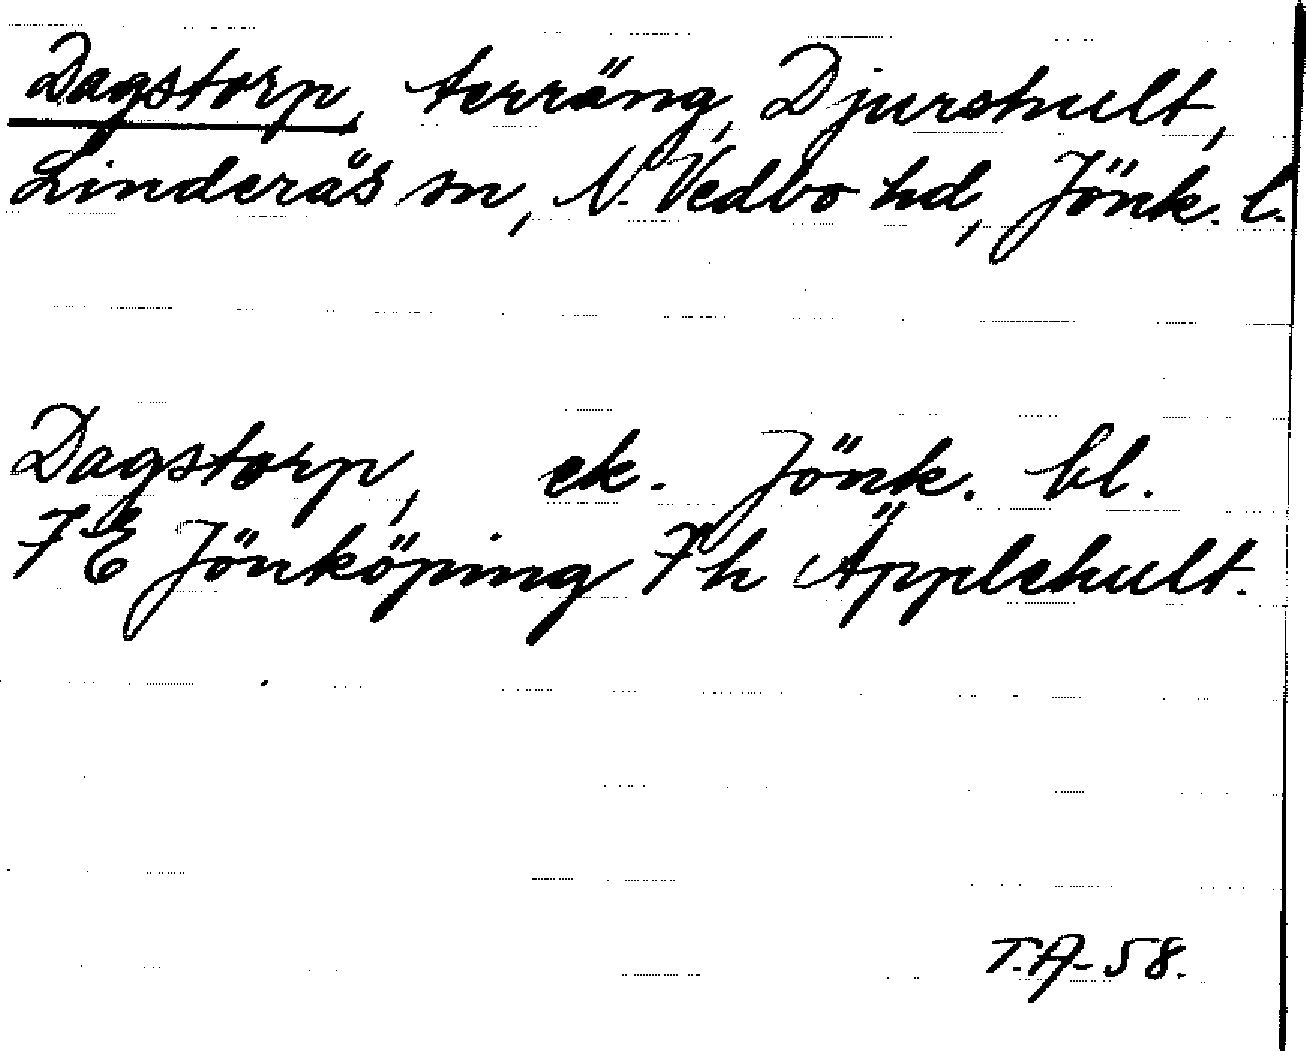 Dagstorp, terräng, Djurshult,
Linderås sn, N. Vedbo hd, Jönk. l.
Dagstorp, ek. Jönk. bl.
7 E Jönköping 7 h Äpplehult.
T.A-58.